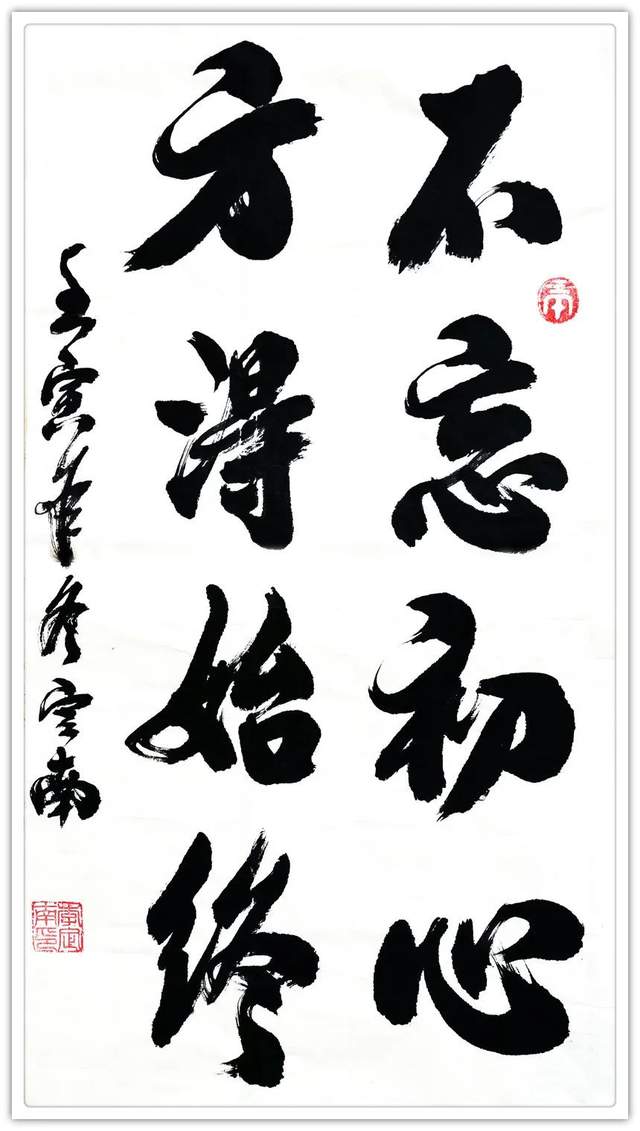 不忘初心
方得始终
壬寅年冬定南